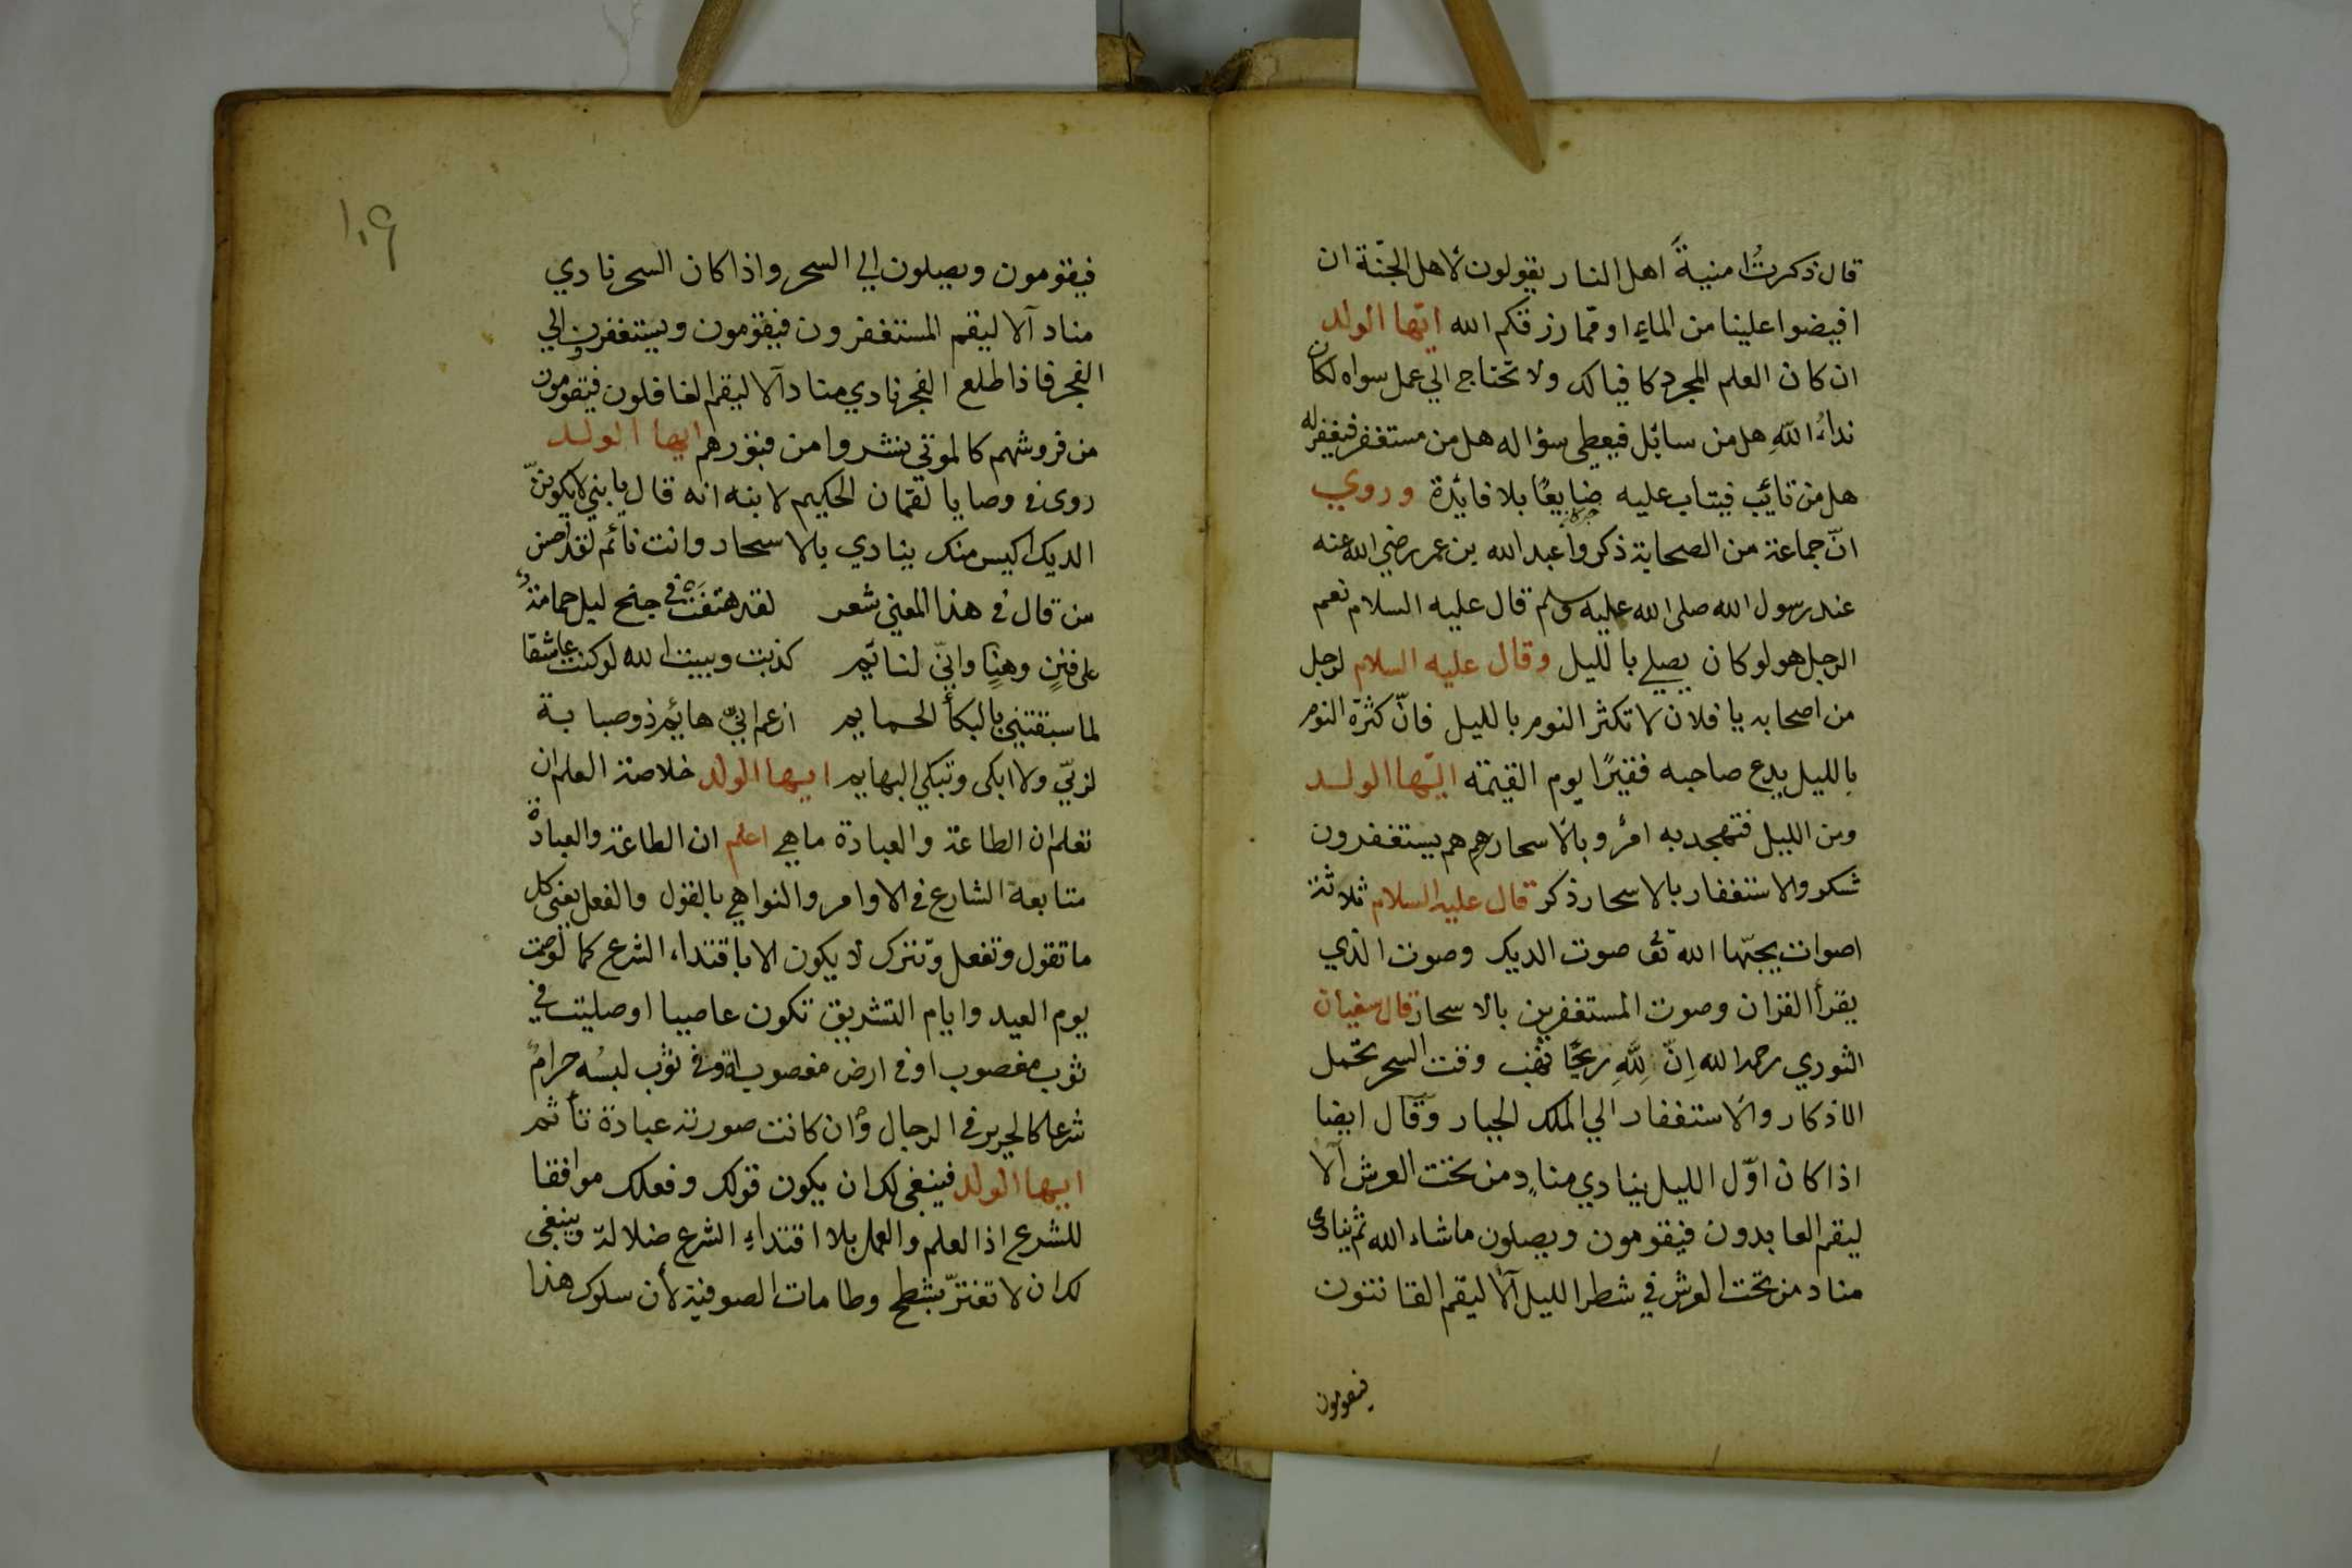 قال ذكرتُ امنيةَ اهل النار يقولون لاهل الجنّة ان
افيضوا علينا من الماءِ او ممّا رزقكم الله ايّها الولد
ان كان العلم المجرد كافيا لك ولا تحتاج الي عمل سواه لكان
نداءُ اللّهِ هل من سائل فيعطى سؤاله هل من مستغفر فيغفر له
هل من تائب فيتاب عليه ضايعًا بلا فائدة وروي
انّ جماعة من الصحابة ذكروا عبد الله بن عمر رضي الله عنه
عند رسول الله صلى الله عليه وسلم قال عليه السلام نعم
الرجل هو لو كان يصلي بالليل وقال عليه السلام لرجل
من اصحابه يا فلان لا تكثر النوم بالليل فانّ كثرة النوم
بالليل يدع صاحبه فقيرًا يوم القيمة ايّها الولد
ومن الليل فتهجد به امرٌ وبالاسحار هم يستغفرون
شكر والاستغفار بالاسحار ذكر قال عليه السلام ثلاثة
اصوات يحبّها الله تع صوت الديك وصوت الذي
يقرأ القرآن وصوت المستغفرين بالاسحار قال سفيان
الثوري رحمه الله اِنّ لِلّهِ ريحًا تهب وقت السحر تحمل
الاذكار والاستغفار الي الملك الجبار وقال ايضا
اذا كان اوّل الليل ينادي منادٍ من تحت العرش آلا
ليقم العابدون فيقومون ويصلون ما شاء الله ثم ينادي
مناد من تحت العرش في شطر الليل آلا ليقم القانتون
فيقومون
١٠٩
فيقومون ويصلون الي السحر واذا كان السحر نادي
مناد آلا ليقم المستغفرون فيقومون ويستغفرون الي
الفجر فاذا طلع الفجر نادي مناد آلا ليقم الغافلون فيقومون
من فروشهم كالموتي نشروا من قبورهم ايها الولد
روى في وصايا لقمان الحكيم لابنه انه قال يا بني لا يكوننّ
الديك اكيس منك ينادي بالاسحار وانت نائم لقد احسن
من قال في هذا المعني شعر لقد هتفت في جنح ليل حمامة
على فننٍ وهنٍا وانيّ لنائم كذبت وبيت الله لو كنت عاشقا
لما سبقتني بالبكأ الحمايم ازعم انيّ هائم ذو صبابة
لربيّ ولا ابكى وتبكي البهايم ايها الولد خلاصة العلم ان
تعلم ان الطاعة والعبادة ما هي اعلم ان الطاعة والعبادة
متابعة الشارع في الاوامر والنواهي بالقول والفعل يعنى كل
ما تقول وتفعل وتترك لا يكون الا باقتداء الشرع كما لو صمت
يوم العيد وايام التشريق تكون عاصيا او صليت في
ثوب مغصوب او في ارض مغصوبة او في ثوب لبسُه حرامٌ
شرعا كالحرير في الرجال وان كانت صورته عبادة تأثم
ايها الولد فينبغى لك ان يكون قولك وفعلك موافقا
للشرع اذ العلم والعمل بلا اقتداءِ الشرع ضلالة وينبغى
لك ان لا تغترّ بشطح وطامات الصوفية لأن سلوك هذا